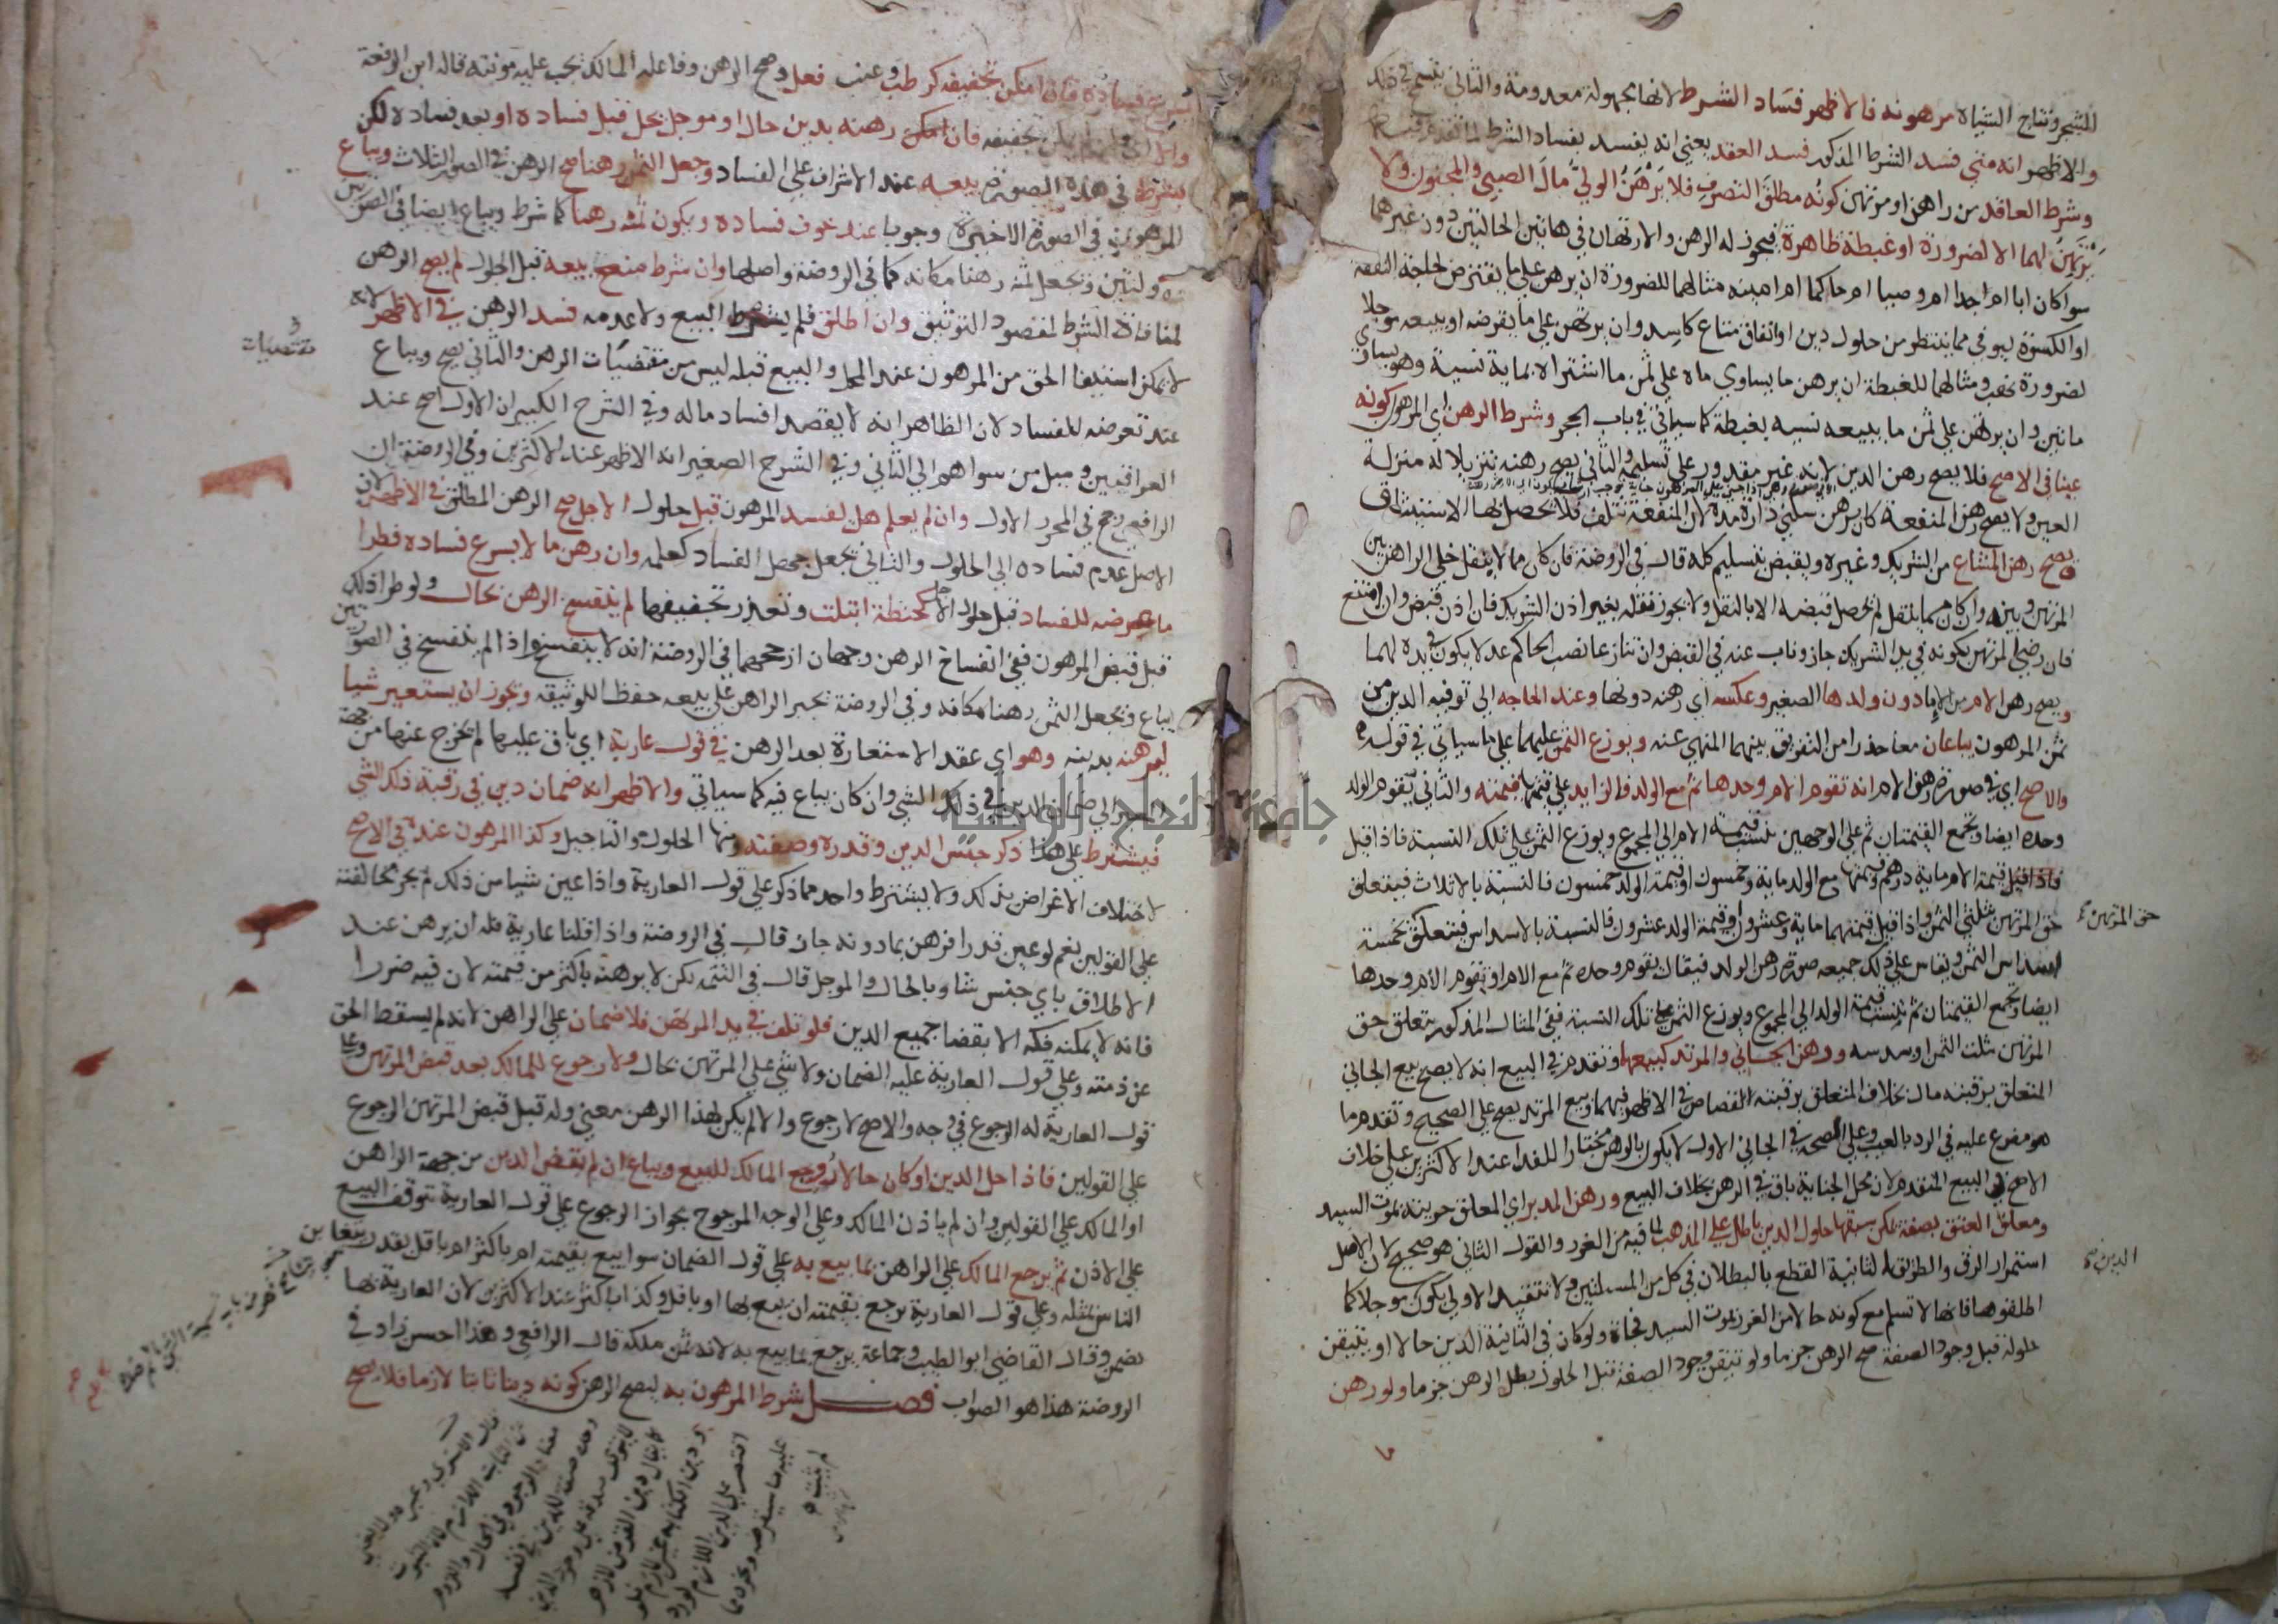 الشجر ونتاج الشياه مرهونه فالاظهر فساد الشرط لانها مجهولة معدومة والثاني يتسمح في ذلك
والاظهر انه متي فسد الشرط المذكور فسد العقد يعني انه يفسد بفساد الشرط لما تقدم
وشرط العاقد من راهن او مرتهن كونه مطلق التصرف فلا يرهن الولي مال الصبي والمجنون ولا
يرتهن لهما الا لضرورة او غبطة ظاهرة فيجوز له الرهن والارتهان في هاتين الحالتين دون غيرهما
سوا كان ابا ام جدا ام وصيا ام حاكما ام امينه مثالهما للضرورة ان يرهن علي ما يقترض لحاجة النفقة
او الكسوة ليوفي مما ينتظر من حلول دين او نفاق متاع كاسد وان يرتهن علي ما يقرضه او يبيعه موجلا
لضرورة نهب ومثالهما للغبطة ان يرهن ما يساوي ماه علي ثمن ما اشتراه بماية نسية وهو يساوي
ماتين وان يرتهن علي ثمن ما يبيعه نسيه لغبطة كما سياتي في باب الحجر وشرط الرهن اي المرهون كونه
عينا في الاصح فلا يصح رهن الدين لانه غير مقدور علي تسليمه والثاني يصح رهنه تنزيلا له منزلة
العين ولا يصح رهن المنفعة كان يرهن سكني داره مدة لان المنفعة تتلف فلا يحصل بها الاستيثاق
ويصح رهن المشاع من الشريك وغيره ويقبض بتسليم كله قال في الروضة فان كان مما لا ينقل خلي الراهن بين
المرتهن وبينه وان كان مما ينقل لم يحصل قبضه الا بالنقل ولا يجوز نقله بغير اذن الشريك فان اذن قبض وان امتنع
فان رضي المرتهن بكونه في يد الشريك جاز وناب عنه في القبض وان تنازعا نصب الحاكم عدلا يكون في يده لهما
ويصح رهن الام من الاما دون ولدها الصغير وعكسه اي رهنه دونها وعند الحاجه الي توفية الدين من
ثمن المرهون يباعان معا حذرا من التفريق بينهما المنهي عنه ويوزع الثمن عليهما علي ما سياتي في قوله
والاصح اي في صورة رهن الام انه تقوم الام وحدها ثم مع الولد فالزايد علي قيمتها قيمته والثاني يقوم الولد
وحده ايضا وتجمع القيمتان ثم علي الوجهين تنسب قيمة الام الي المجموع ويوزع الثمن علي تلك النسبة فاذا قيل
فاذا قيل قيمة الام ماية درهم وقيمتها مع الولد ماية وخمسون او قيمة الولد خمسون فالنسبة بالاثلاث فيتعلق
حق المرتهن بثلثي الثمن واذا قيل قيمتهما ماية وعشرون او قيمة الولد عشرون فالنسبة بالاسداس فيتعلق بخمسة
اسداس الثمن ويقاس علي ذلك جميعه صورة رهن الولد فيقال يقوم وحده ثم مع الام او تقوم الام وحدها
ايضا وتجمع القيمتان ثم ينسب قيمة الولد الي المجموع ويوزع الثمن علي تلك النسبة ففي المثال المذكور يتعلق حق
المرتهن بثلث الثمن او سدسه ورهن الجاني والمرتد كبيعهما وتقدم في البيع انه لا يصح بيع الجاني
المتعلق برقبته مال بخلاف المتعلق برقبته القصاص في الاظهر فيهما وبيع المرتد يصح علي الصحيح وتقدم ما
هو مفرع عليه في الرد بالعيب وعلي الصحة في الجاني الاول لا يكون بالرهن مختارا للفدا عند الاكثرين علي خلاف
الاصح في البيع المتقدم لان محل الجناية باق في الرهن بخلاف البيع ورهن المدبر اي المعلق حريته بموت السيد
ومعلق العتق بصفة يمكن سبقها حلول الدين باطل علي المذهب لما فيه من الغرر والقول الثاني هو صحيح لان الاصل
استمرار الرق والطريقة الثانية القطع بالبطلان في كل من المسئلتين ولا تتقيد الاولي بكون موجلا كما
اطلقوها فانها لا تسلم مع كونه حالا من الغرر بموت السيد فجاة ولو كان في الثانية الدين حالا او يتيقن
حلوله قبل وجود الصفة صح الرهن جزما ولو تيقن وجود الصفة قبل الحلول بطل الرهن جزما ولو رهن
حق المرتهن
الدين
فساده فان امكن تجفيفه كرطب وعنب فعل وصح الرهن وفاعله المالك تجب عليه مونته قاله ابن الرفعة
والا اي وان لم يمكن تجفيفه فان رهنه بدين حال او موجل يحل قبل فساده او بعد فساده لكن
بشرط في هذه الصورة بيعه عند الاشراف علي الفساد وجعل الثمن رهنا صح الرهن في الصور الثلاث ويباع
المرهون في الصورة الاخيرة وجوبا عند خوف فساده ويكون ثمنه رهنا كما شرط ويباع ايضا في الصورتين
الاولتين ويجعل ثمنه رهنا مكانه كما في الروضة واصلها وان شرط منع بيعه قبل الحلول لم يصح الرهن
لمنافاة الشرط لمقصود التوثيق وان اطلق فلم يشترط البيع ولا عدمه فسد الرهن في الاظهر لانه
لا يمكن استيفا الحق من المرهون عند المحل والبيع قبله ليس من مقتضيات الرهن والثاني يصح ويباع
عند تعرضه للفساد لان الظاهر انه لا يقصد افساد ماله وفي الشرح الكبير ان الاول اصح عند
العراقيين وميل من سواهم الي الثاني وفي الشرح الصغير انه الاظهر عند الاكثرين وفي الروضة ان
الرافعي رجح في المحرر الاول وان لم يعلم هل يفسد المرهون قبل حلول الاجل صح الرهن المطلق في الاظهر لان
الاصل عدم فساده الي الحلول والثاني يجعل جهل الفساد كعلمه وان رهن ما لا يسرع فساده فطرا
ما عرضه للفساد قبل حلول الاجل كحنطة ابتلت وتعذر تجفيفها لم ينفسخ الرهن بحال ولو طرا ذلك
قبل قبض المرهون ففي انفساخ الرهن وجهان ارجحهما في الروضة انه لا ينفسخ واذا لم ينفسخ في الصورتين
يباع ويجعل الثمن رهنا مكانه وفي الروضة يجبر الراهن علي بيعه حفظا للوثيقة ويجوز ان يستعير شيا
ليرهنه بدينه وهو اي عقد الاستعارة بعد الرهن في قول عارية اي باق عليها لم يخرج عنها من جهة
ضمان الدين في ذلك الشي وان كان يباع فيه كما سياتي والاظهر انه ضمان دين في رقبة ذلك الشي
فيشترط علي هذا ذكر جنس الدين وقدره وصفته ومنها الحلول والتاجيل وكذا المرهون عنده في الاصح
لاختلاف الاغراض بذلك ولا يشترط واحد مما ذكر علي قول العارية واذا عين شيا من ذلك لم يجز مخالفته
علي القولين نعم لو عين قدرا فرهن بما دونه جاز قال في الروضة واذا قلنا عارية فله ان يرهن عند
الاطلاق باي جنس شا وبالحال والموجل قال في التتمة لكن لا يرهنه باكثر من قيمته لان فيه ضررا
فانه لا يمكنه فكه الا بقضا جميع الدين فلو تلف في يد المرتهن فلا ضمان علي الراهن لانه لم يسقط الحق
عن ذمته وعلي قول العارية عليه الضمان ولا شي علي المرتهن بحال ولا رجوع للمالك بعد قبض المرتهن وعلي
قول العارية له الرجوع في وجه والاصح لا رجوع والا لم يكن لهذا الرهن معني وله قبل قبض المرتهن الرجوع
علي القولين فاذا حل الدين او كان حالا روجع المالك للبيع ويباع ان لم يقض الدين من جهة الراهن
او المالك علي القولين وان لم ياذن المالك وعلي الوجه المرجوح بجواز الرجوع علي قول العارية تتوقف البيع
علي الاذن ثم يرجع المالك علي الراهن بما بيع به علي قول الضمان سوا بيع بقيمته ام باكثر ام باقل بقدر يتغابن
الناس بمثله وعلي قول العارية يرجع بقيمته ان بيع بها او باقل وكذا باكثر عند الاكثرين لان العارية بها
تضمن وقال القاضي ابو الطيب وجماعة يرجع بما بيع به لانه ثمن ملكه قال الرافعي وهذا احسن زاد في
الروضة هذا هو الصواب فصل شرط المرهون به ليصح الرهن كونه دينا ثابتا لازما فلا يصح
مقتضيات
جامعة النجاح الوطنية